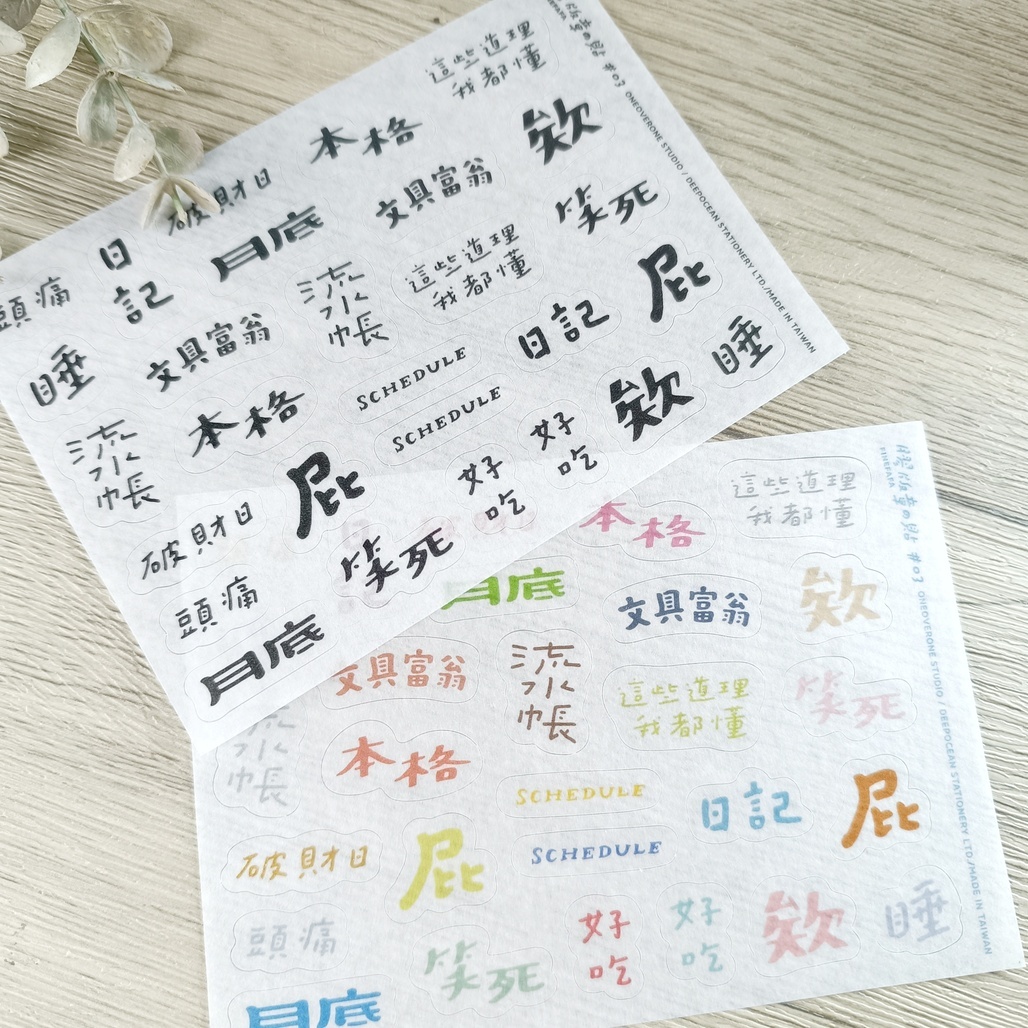 這些道理
我都懂
本格
欸
破財日
文具富翁
笑死
日
記
月底
頭痛
流
水
帳
這些道理
我都懂
屁
睡
文具富翁
日記
睡
本格
SCHEDULE
欸
SCHEDULE
流
水
帳
屁
好
吃
好
吃
破財日
笑死
頭痛
月底
#03 ONEOVERONE STUDIO / DEEPOCEAN STATIONERY LTD./MADE IN TAIWAN
本格
這些道理
我都懂
月底
文具富翁
欸
文具富翁
流
水
帳
這些道理
我都懂
笑死
流
水
帳
本格
SCHEDULE
日記
屁
破財日
屁
SCHEDULE
頭痛
笑死
好
吃
好
吃
欸
睡
月底
#03 ONEOVERONE STUDIO / DEEPOCEAN STATIONERY LTD./MADE IN TAIWAN